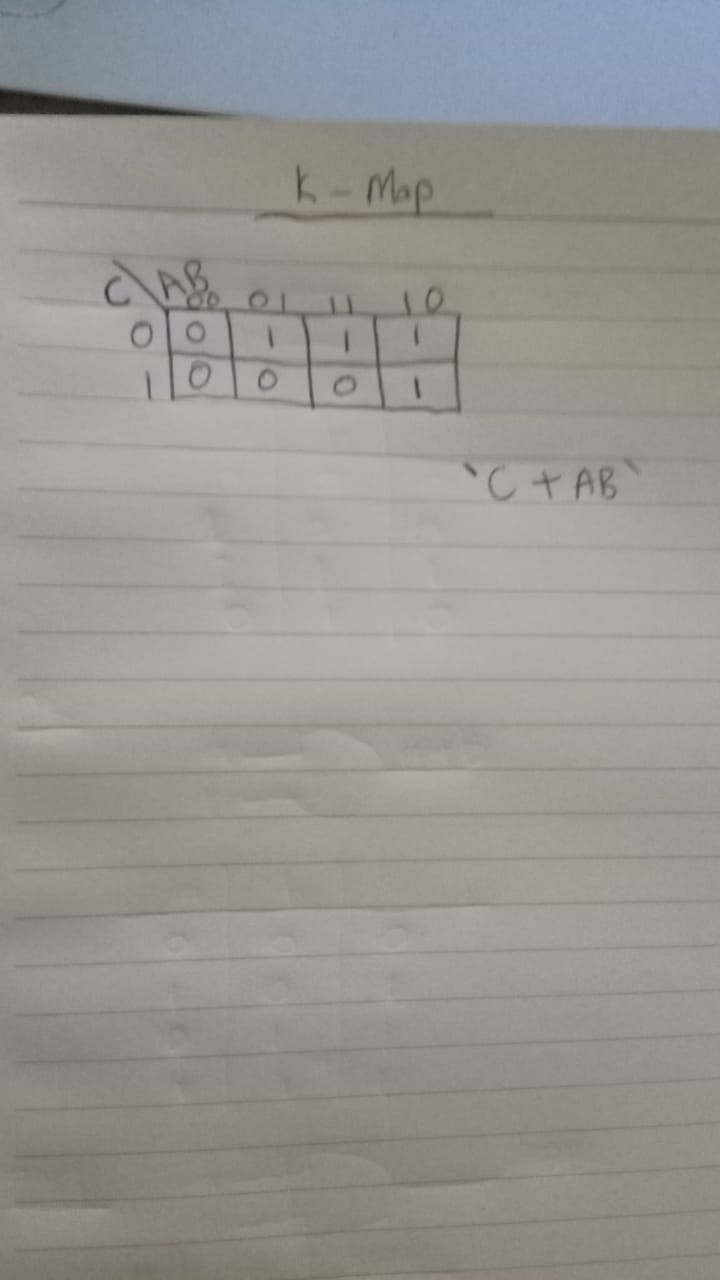 K - Map
C\AB 00 01 11 10
0 0 1 1 1
1 0 0 0 1
`C + AB`